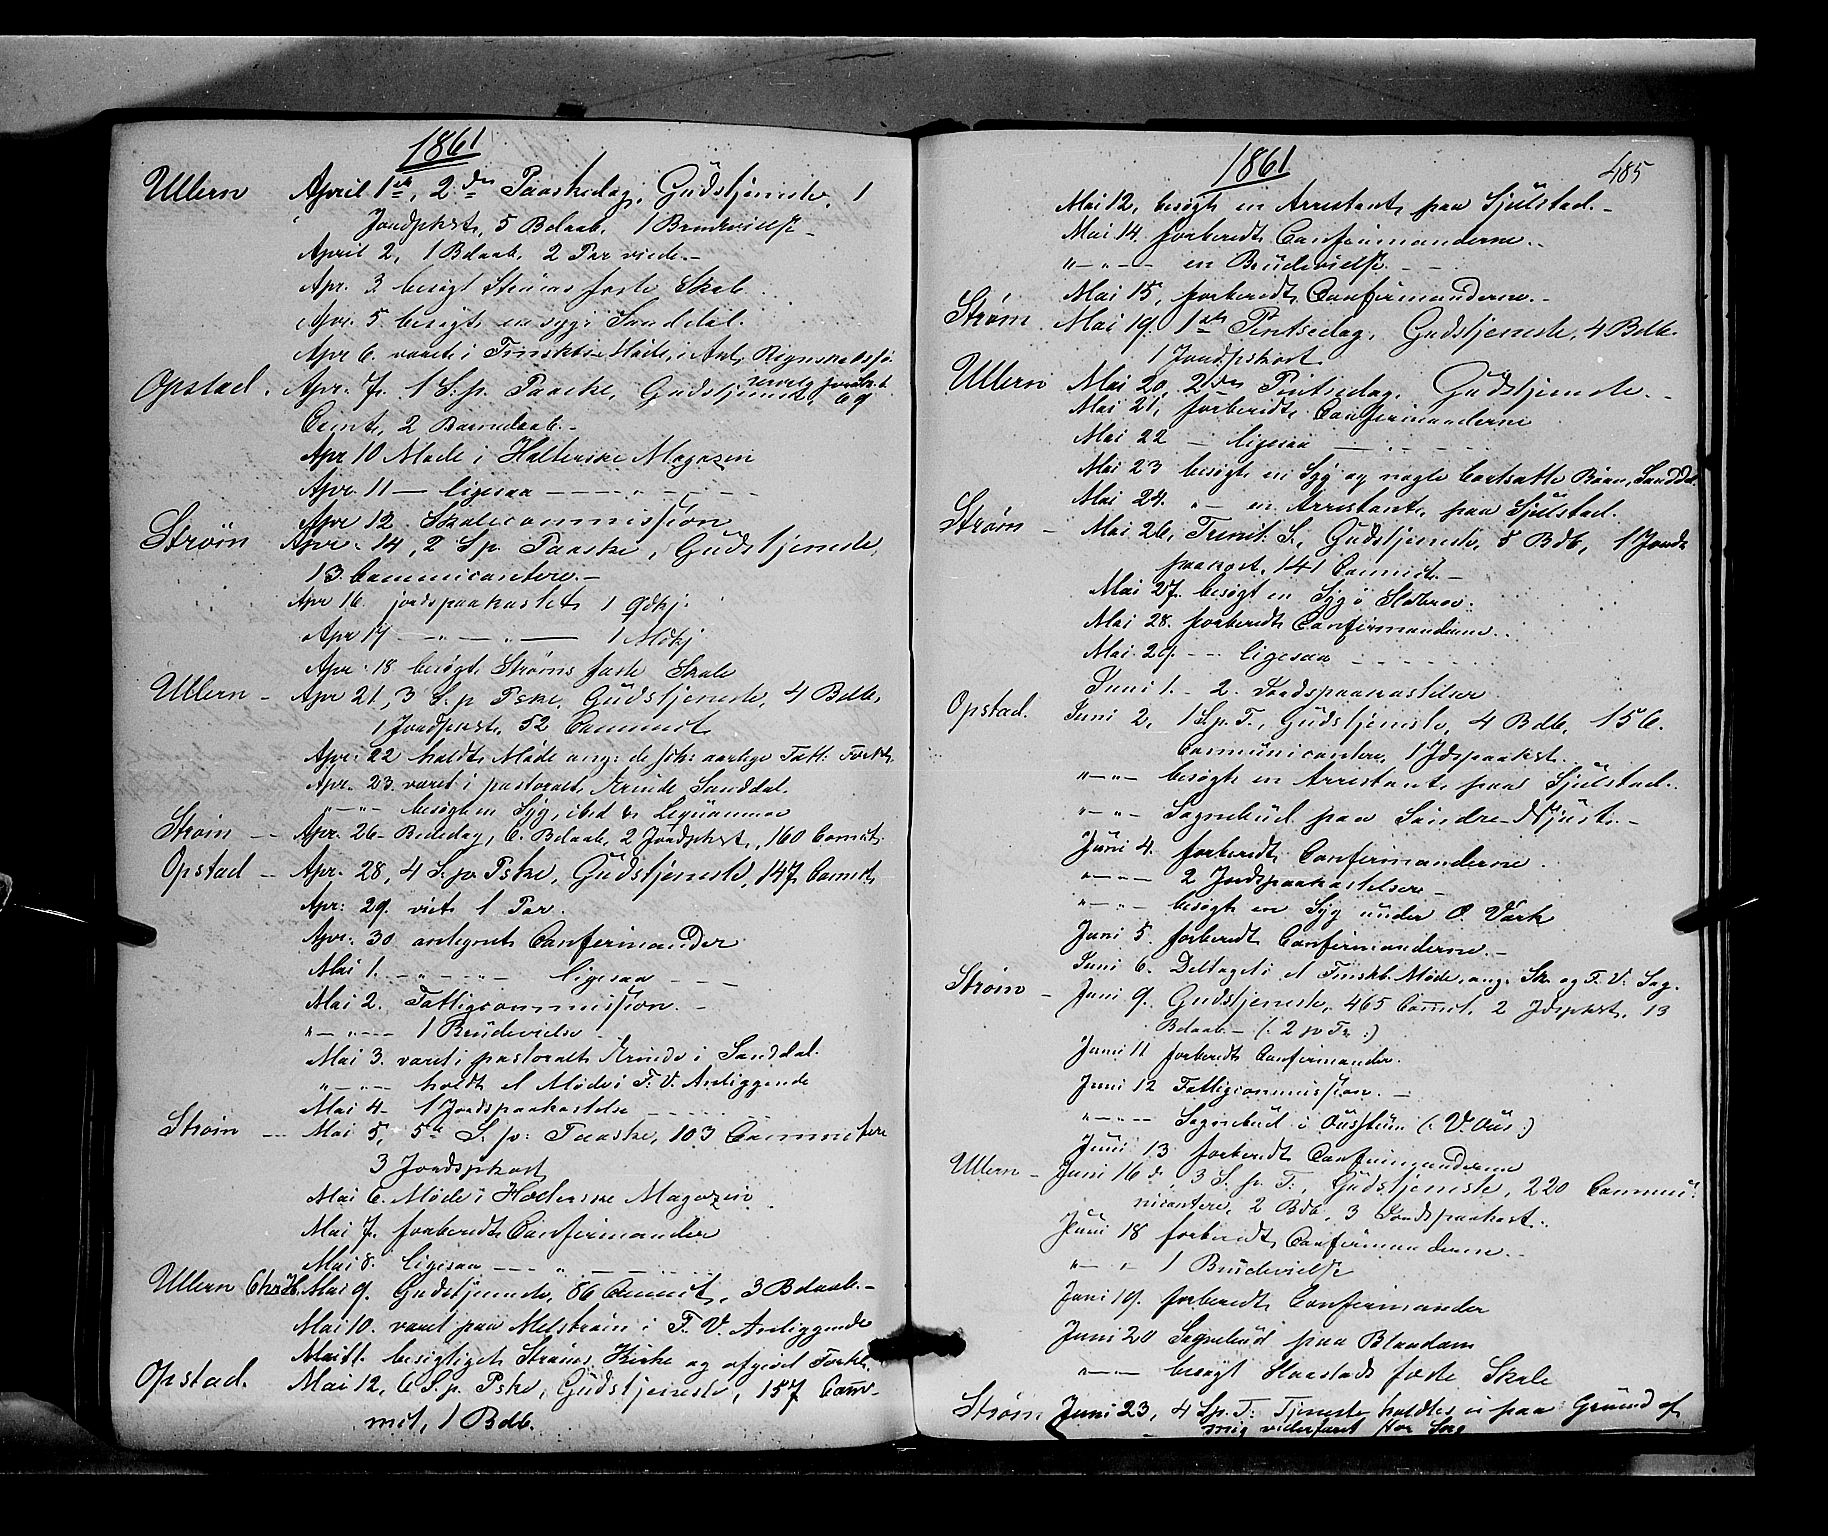 1861
Ullern April 1ste, 2den Paaskedag, Gudstjeneste, 1
Jordpkst, 5 Bdaab, 1 Brudevielse –
April 2, 1 Bdaab, 2 Par viede. –
Apr. 3 besøgt Strøms faste Skole
Apr. 5. besøgt en syg i Sanddal.
Apr 6. været i Møde, i Anl. Regnskabs
Opstad. Apr. 7. 1 S. p. Paaske, Gudstjeneste, 69
Comt, 2 Barnedaab. –
Apr 10 Møde i Magazin
Apr. 11 — ligesaa – – – –
Apr 12. Skolecommission
Strøm Apr. 14, 2 S p. Paaske, Gudstjeneste,
13 Communicantere. –
Apr 16. jordspaakastet 1
Apr 17 – „ – „ – 1
Apr. 18 besøgt Strøms faste Skole
Ullern – Apr 21, 3 S. p Pske, Gudstjeneste, 4 Bdb,
1 Jordpkst, 52 Communict
Apr. 22 holdt Møde ang: de aarlige
Apr. 23. været i pastoralt Ærinde Sanddal.
„ – „ – besøgt en Syg, ibid
Strøm – – Apr. 26 – Bededag, 6. Bdaab, 2 Jordpkst, 160 Comct.
Opstad – Apr. 28, 4 S. p Pske, Gudstjeneste, 147 Comct
Apr: 29. viet 1 Par.
Apr. 30 antegnet Confirmander
Mai 1. – „ – „ – ligesaa – – –
Mai 2. Fattigcommission. –
„ – „ – – 1 Brudevielse
Mai 3. været i pastoralt Ærinde i Sanddal.
„ – „ – holdt et Møde i F. V. Anliggende
Mai 4 – 1 Jordspaakastelse
Strøm – – Mai 5, 5te S. p: Paaske, 103 Communictere
3 Jordspkast
Mai 6. Møde i Magazin
Mai 7. forberedt Confirmander
Mai 8. ligesaa – – – „ – – –
Ullern Chr.H. Mai 9. Gudstjeneste, 86 Commict, 3 Bdaab. –
Mai 10. været paa Melstrøm i F. V. Anliggende
Mai 11. besigtiget Strøms Kirke og afgivet Forkl.
Opstad. Mai 12, 6 S. p. Pske, Gudstjeneste, 157 Com-
mct, 1 Bdb.
1861 485
Mai 12, besøgt en Arrestant paa Sjulstad. –
Mai 14. forberedt Confirmanderne. –
„ – „ – – en Brudevielse. – –
Mai 15, forberedt Confirmanderne. –
Strøm. Mai 19. 1ste Pintsedag, Gudstjeneste, 4 Bdb.
1 Jordspkast.
Ullern Mai 20, 2den Pintsedag, Gudstjeneste. –
Mai 21, forberedt Confirmanderne
Mai 22 – ligesaa – – –
Mai 23 besøgt en Syg og nogle bortsatte Børn, Sanddal
Mai 24. „ – en Arrestant, paa Sjulstad.
Strøm – Mai 26, Trinit. S., Gudstjeneste, 8 Bdb, 1 Jords
paakast, 141 Commict. –
Mai 27. besøgt en Syg i
Mai 28. forberedt Confirmanderne.
Mai. 29. – – ligesaa – – –
Juni 1. – 2. Jordspaakastelser
Opstad. Juni 2, 1 S. p. T., Gudstjeneste, 4 Bdb, 156.
Communicantere, 1 Jdspaakst.
„ – „ – besøgt en Arrestant paa Sjulstad.
„ – „ – Sognebud paa Søndre –
Juni 4. forberedt Confirmanderne.
„ – „ – – 2 Jordspaakastelser –
„ – „ – besøgt en Syg under O. Værk
Juni 5. forberedt Confirmanderne. –
Juni 6. Deltaget i et Møde, ang. Sk. og F. V. Sag.
Strøm – Juni 9. Gudstjeneste, 465 Comct, 2 Jdspkst, 13
Bdaab – (: 2 p Tr :)
Juni 11 forberedt Confirmander.
Juni 12 Fattigcommission. –
„ – „ – – Sognebud i (: V. Ous :)
Juni 13 forberedt Confirmanderne
Ullern – Juni 16de, 3 S. p. T., Gudstjeneste, 220 Commu-
nicantere, 2 Bdb, 3 Jordspaakast.
Juni 18 forberedt Confirmanderne. –
„ – „ 1 Brudevielse
Juni 19. forberedt Confirmander
Juni 20 Sognebud paa
„ – „ – besøgt faste Skole
Strøm Juni 23, 4 S p. T: Tjeneste holdtes ei paa Grund af
mig vederfaret stor Sorg